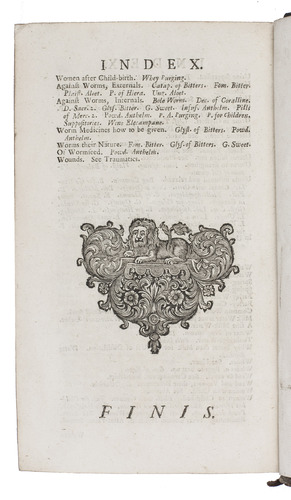 INDEX.
Women after Child-birth. Whey Purging.
Against Worms, Externals. Catap. of Bitters. Fom. Bitter.
Plaist. Aloet. P. of Hiera. Ung. Aloet.
Against Worms, Internals. Bole Worm. Dec. of Coralline.
D. Sacr. 2. Glyst. Bitter. G. Sweet. Infus. Anthelm. Pills
of Merc. 2. Powd. Anthelm. P. A. Purging. P. for Children.
Suppositories. Wine Elecampane.
Worm Medicines how to be given. Glyst. of Bitters. Powd.
Anthelm.
Worms their Nature. Fom. Bitter. Glyst. of Bitters. G. Sweet.
Of Wormseed. Powd. Anthelm.
Wounds. See Traumatics.
FINIS.